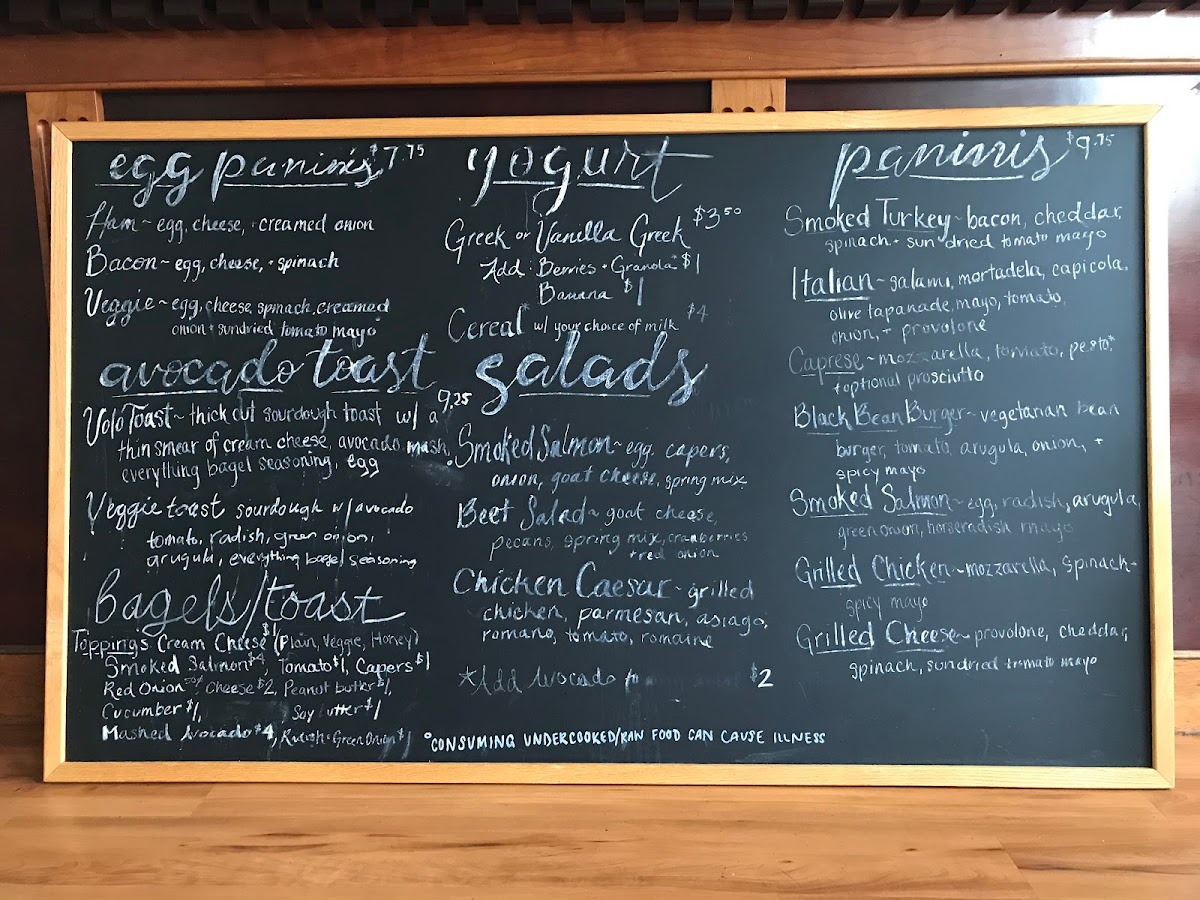 egg paninis $7.75
Ham ~ egg, cheese, + creamed onion
Bacon ~ egg, cheese, + spinach
Veggie ~ egg, cheese, spinach, creamed
onion + sundried tomato mayo
avocado toast
9.25
Volo Toast ~ thick cut sourdough toast w/ a
thin smear of cream cheese, avocado mash,
everything bagel seasoning, egg
Veggie toast sourdough w/ avocado
tomato, radish, green onion,
arugula, everything bagel seasoning
bagels/toast
Toppings Cream Cheese $1 (Plain, Veggie, Honey)
Smoked Salmon $4, Tomato $1, Capers $1
Red Onion 50¢, Cheese $2, Peanut butter $1,
Cucumber $1, Soy butter $1
Mashed Avocado $4, Radish + Green Onion $1
yogurt
Greek or Vanilla Greek $3.50
Add: Berries + Granola* $1
Banana $1
Cereal* w/ your choice of milk $4
salads
Smoked Salmon ~ egg, capers,
onion, goat cheese, spring mix
Beet Salad ~ goat cheese,
pecans, spring mix, cranberries
+ red onion
Chicken Caesar ~ grilled
chicken, parmesan, asiago,
romano, tomato, romaine
*Add Avocado $2
°CONSUMING UNDERCOOKED/RAW FOOD CAN CAUSE ILLNESS
paninis $9.75
Smoked Turkey ~ bacon, cheddar,
spinach + sun dried tomato mayo
Italian ~ salami, mortadela, capicola,
olive tapanade, mayo, tomato,
onion, + provolone
Caprese ~ mozzarella, tomato, pesto*
+ optional prosciutto
Black Bean Burger ~ vegetarian bean
burger, tomato, arugula, onion, +
spicy mayo
Smoked Salmon ~ egg, radish, arugula,
green onion, horseradish mayo
Grilled Chicken ~ mozzarella, spinach +
spicy mayo
Grilled Cheese ~ provolone, cheddar,
spinach, sundried tomato mayo